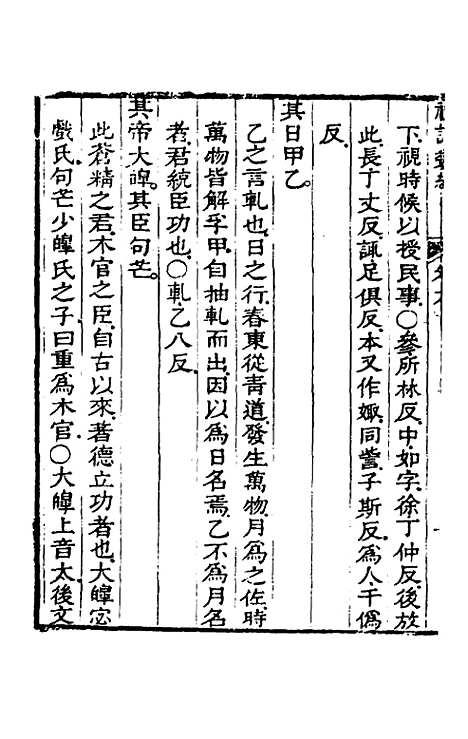 下視時候以授民事○參所林反中如字徐丁仲反後放
此長丁丈反諏足俱反本又作娵同訾子斯反爲人千僞
反
其日甲乙
乙之言軋也日之行春東從靑道發生萬物月爲之佐時
萬物皆解孚甲自抽軋而出因以爲日名焉乙不爲月名
者君統臣功也○軋乙八反
其帝大皥其臣句芒
此蒼精之君木官之臣自古以來著德立功者也大皥宓
戲氏句芒少皥氏之子曰重爲木官○大皥上音太後文